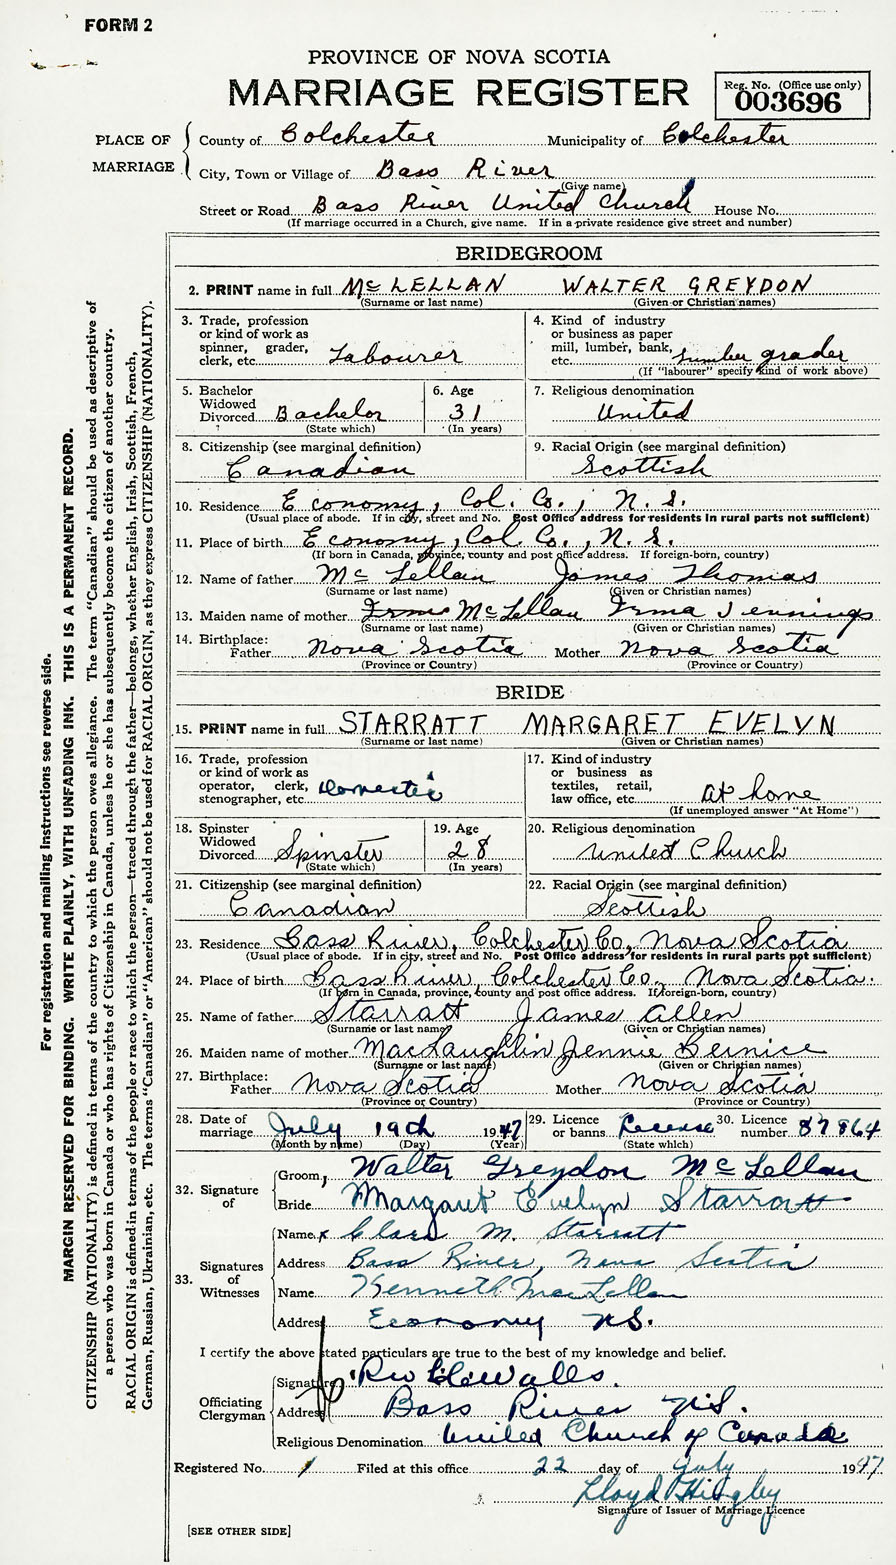 FORM 2
PROVINCE OF NOVA SCOTIA
MARRIAGE REGISTER
Reg. No. (Office use only)
003696
PLACE OF MARRIAGE
County of Colchester Municipality of Colchester
City, Town or Village of Bass River
(Give name)
Street or Road Bass River United Church House No.
(If marriage occurred in a Church, give name. If in a private residence give street and number)
BRIDEGROOM
2. PRINT name in full McLELLAN WALTER GREYDON
(Surname or last name) (Given or Christian names)
3. Trade, profession or kind of work as spinner, grader, clerk, etc. Labourer
4. Kind of industry or business as paper mill, lumber, bank, etc. Lumber grader
(If "labourer" specify kind of work above)
5. Bachelor Widowed Divorced Bachelor
(State which)
6. Age 31
(In years)
7. Religious denomination United
8. Citizenship (see marginal definition) Canadian
9. Racial Origin (see marginal definition) Scottish
10. Residence Economy, Col. Co., N. S.
(Usual place of abode. If in city, street and No. Post Office address for residents in rural parts not sufficient)
11. Place of birth Economy, Col. Co., N. S.
(If born in Canada, province, county and post office address. If foreign-born, country)
12. Name of father McLellan James Thomas
(Surname or last name) (Given or Christian names)
13. Maiden name of mother Irma McLellan Irma Jennings
(Surname or last name) (Given or Christian names)
14. Birthplace: Father Nova Scotia Mother Nova Scotia
(Province or Country) (Province or Country)
BRIDE
15. PRINT name in full STARRATT MARGARET EVELYN
(Surname or last name) (Given or Christian names)
16. Trade, profession or kind of work as operator, clerk, stenographer, etc. Domestic
17. Kind of industry or business as textiles, retail, law office, etc. At home
(If unemployed answer "At Home")
18. Spinster Widowed Divorced Spinster
(State which)
19. Age 28
(In years)
20. Religious denomination United Church
21. Citizenship (see marginal definition) Canadian
22. Racial Origin (see marginal definition) Scottish
23. Residence Bass River, Colchester Co, Nova Scotia
(Usual place of abode. If in city, street and No. Post Office address for residents in rural parts not sufficient)
24. Place of birth Bass River, Colchester Co, Nova Scotia.
(If born in Canada, province, county and post office address. If foreign-born, country)
25. Name of father Starratt James Allen
(Surname or last name) (Given or Christian names)
26. Maiden name of mother MacLaughlin Jennie Bernice
(Surname or last name) (Given or Christian names)
27. Birthplace: Father Nova Scotia Mother Nova Scotia
(Province or Country) (Province or Country)
28. Date of marriage July 19th 1947
(Month by name) (Day) (Year)
29. Licence or banns License
(State which)
30. Licence number 87864
32. Signature of
Groom, Walter Greydon McLellan
Bride Margaret Evelyn Starratt
33. Signatures of Witnesses
Name x Clara M. Starratt
Address Bass River, Nova Scotia
Name Kenneth MacLellan
Address Economy N.S.
I certify the above stated particulars are true to the best of my knowledge and belief.
Officiating Clergyman
Signature Rev Walls.
Address Bass River N.S.
Religious Denomination United Church of Canada
Registered No. 1 Filed at this office 22 day of July 1947
Lloyd Hingley
Signature of Issuer of Marriage Licence
[SEE OTHER SIDE]
For registration and mailing instructions see reverse side.
MARGIN RESERVED FOR BINDING. WRITE PLAINLY, WITH UNFADING INK. THIS IS A PERMANENT RECORD.
CITIZENSHIP (NATIONALITY) is defined in terms of the country to which the person owes allegiance. The term "Canadian" should be used as descriptive of
a person who was born in Canada or who has rights of Citizenship in Canada, unless he or she has subsequently become the citizen of another country.
RACIAL ORIGIN is defined in terms of the people or race to which the person—traced through the father—belongs, whether English, Irish, Scottish, French,
German, Russian, Ukrainian, etc. The terms "Canadian" or "American" should not be used for RACIAL ORIGIN, as they express CITIZENSHIP (NATIONALITY).